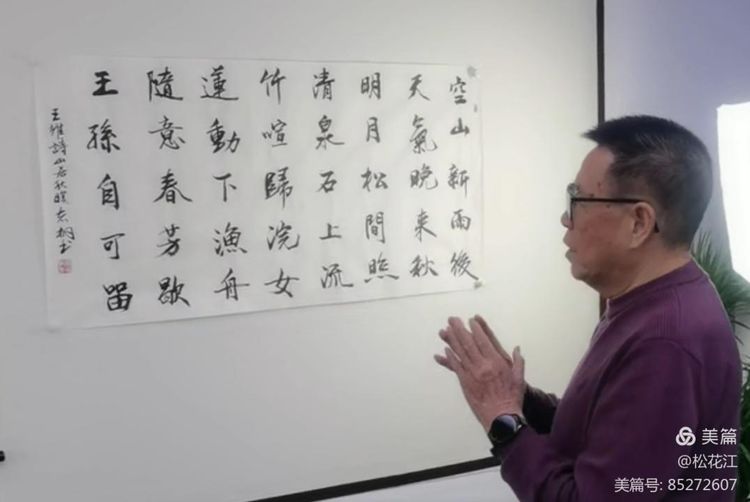 空山新雨後
天氣晚来秋
明月松間照
清泉石上流
竹喧歸浣女
蓮動下漁舟
隨意春芳歇
王孫自可留
王維詩山居秋暝
美篇
@松花江
美篇号: 85272607